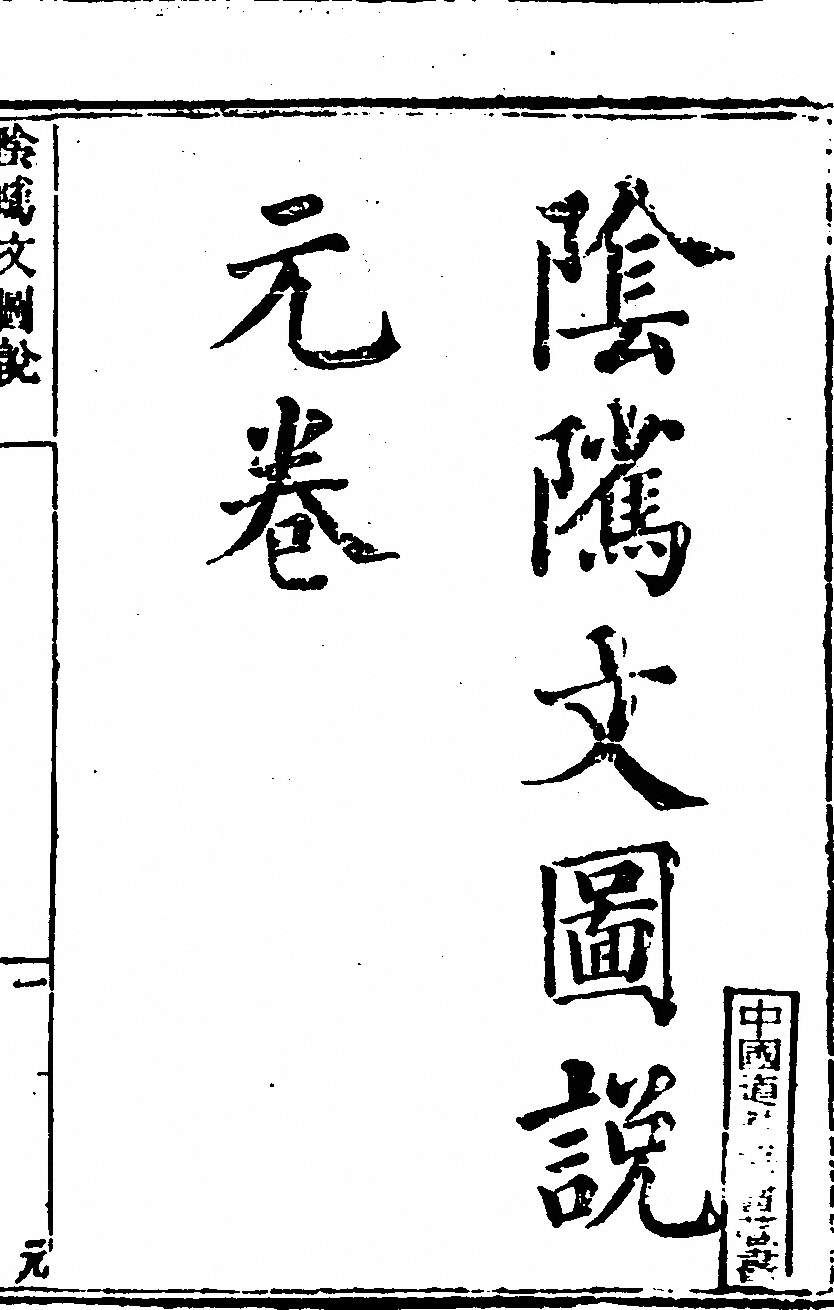 中國道
隂隲文圖說
元卷
隂隲文圖說
一
元